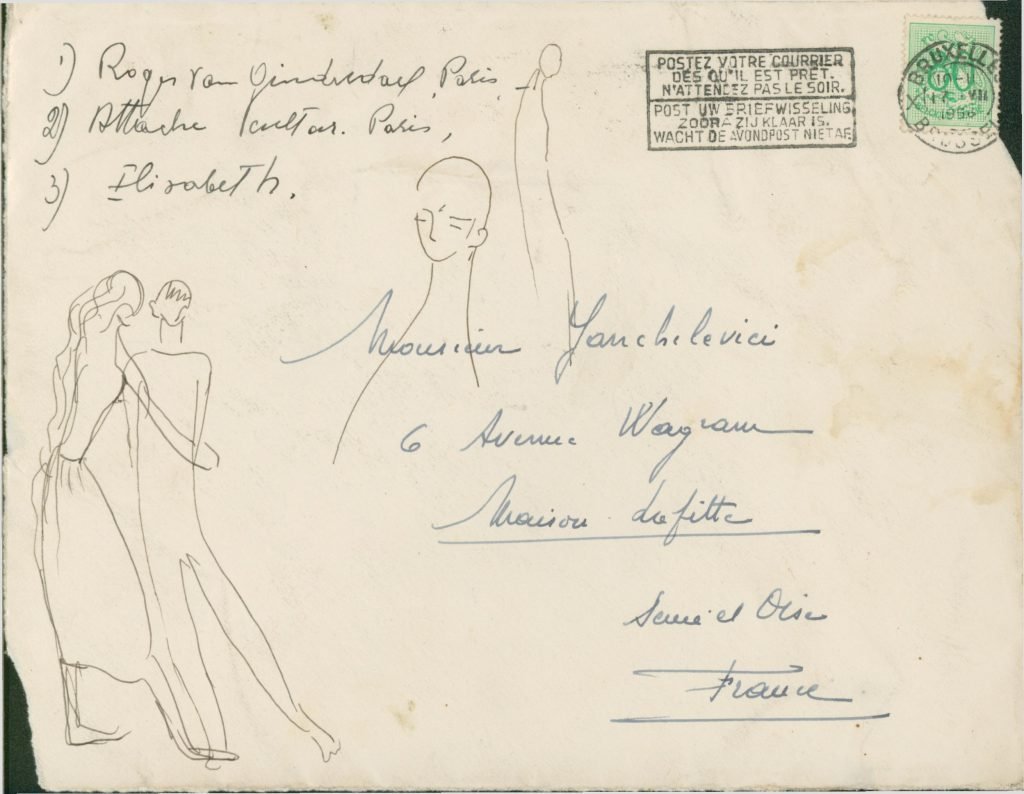 1) Roger Van Gindertael, Paris,
2) Attache Paris,
3) Elisabeth.
POSTEZ VOTRE COURRIER
DES QU'IL EST PRET.
N'ATTENDEZ PAS LE SOIR.
POST UW BRIEFWISSELING
ZOODRA ZIJ KLAAR IS.
WACHT DE AVONDPOST NIET AF.
BRUXELLES
VII
BRUSSEL
Monsieur Janchelevici
6 Avenue Wagram
Maison Lafitte
Seine et Oise
France